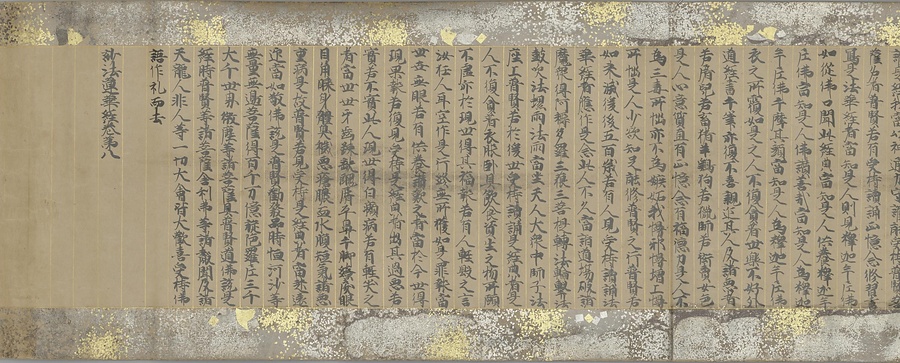 薩名者普賢若有受持讀誦正憶念修習書
寫是法華經者當知是人則見釋迦牟尼佛
如從佛口聞此經典當知是人供養釋迦牟
尼佛當知是人佛讚善哉當知是人為釋迦
牟尼佛手摩其頭當知是人為釋迦牟尼佛
衣之所覆如是之人不復貪著世樂不好外
道經書手筆亦復不喜親近其人及諸惡者
若屠兒若畜猪羊雞狗若獵師若衒賣女色
是人心意質直有正憶念有福德力是人不
為三毒所惱亦不為嫉妬我慢邪慢增上慢
所惱是人少欲知足能修普賢之行普賢若
如來滅後後五百歲若有人見受持讀誦法
華經者應作是念此人不久當詣道場破諸
魔衆得阿耨多羅三藐三菩提轉法輪擊法
鼓吹法螺雨法雨當坐天人大衆中師子法
座上普賢若於後世受持讀誦是經典者是
人不復貪著衣服臥具飲食資生之物所願
不虛亦於現世得其福報若有人輕毀之言
汝狂人耳空作是行終無所獲如是罪報當
世世無眼若有供養讚歎之者當於今世得
現果報若復見受持是經者出其過惡若
實若不實此人現世得白癩病若有輕笑之
者當世世牙齒疎缺醜脣平鼻手脚繚戾眼
目角睞身體臭穢惡瘡膿血水腹短氣諸惡
重病是故普賢若見受持是經典者當起遠
迎當如敬佛說是普賢勸發品時恒河沙等
無量無邊菩薩得百千万億旋陀羅尼三千
大千世界微塵等諸菩薩具普賢道佛說是
經時普賢等諸菩薩舍利弗等諸聲聞及諸
天龍人非人等一切大會皆大歡喜受持佛
語作礼而去
妙法蓮華經卷第八